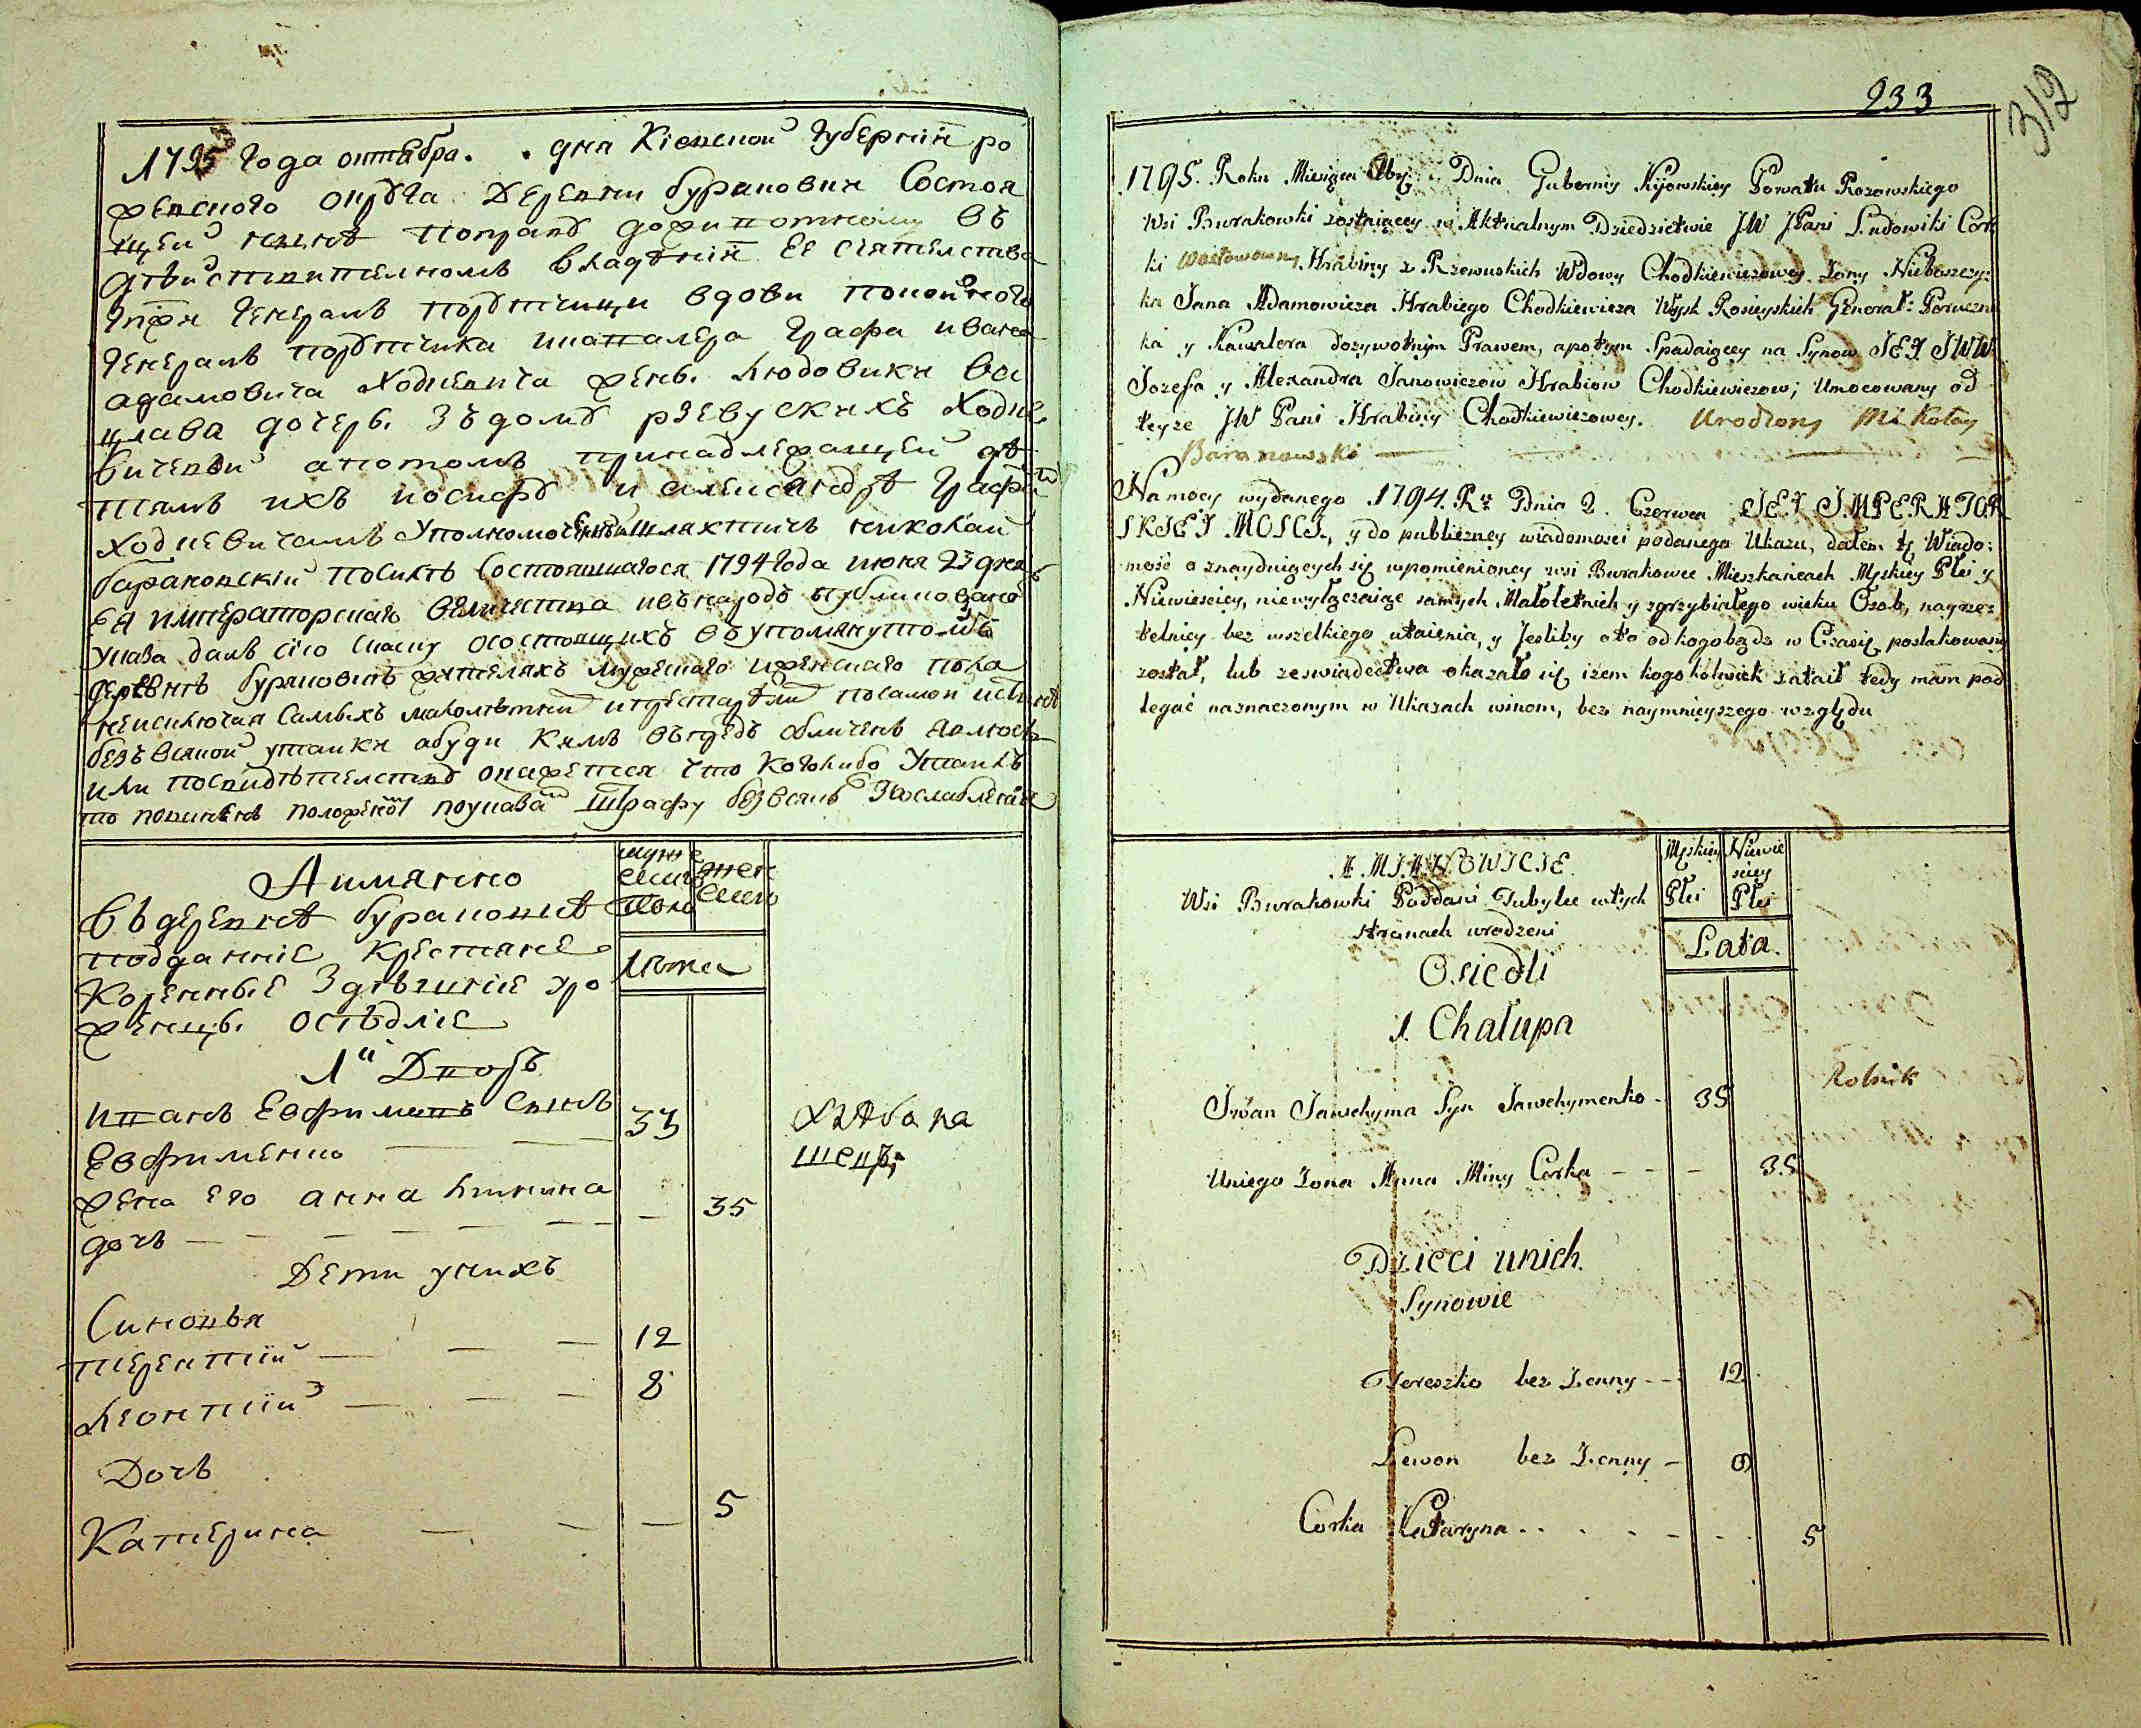 1795 Года октября. дня Кіевской Губерніи ро
жевского округа Деревни бураковки Состоя
щей нынѣ поправу доживотному въ
дѣйствителномъ владѣніи Ее сіятелства
Генералъ порутчици вдови покойного
Генералъ порутчика икавалера Графа ивана
адамовича Ходкевича жены. людовики ва
цлава дочеры. Зъдому рзевускихъ Ходке
вичевой апотомъ принадлежащей дѣ
тямъ ихъ иосифу и александрѣ Графа
Ходкевичемъ Уполномоченный шляхтичъ николай
барановскій посилѣ Состоявшагося 1794 года июня 23 дня
Ея императорскаго величества ивънародъ публикованаго
указа далъ сію скаску осостоящихъ въупомянутой
деревнѣ бураковкѣ жителяхъ мужескаго иженскаго пола
неисключая Самыхъ малолѣтныхъ ипрестарѣлыхъ посамой истиннѣ
безъ всякой утайки абуди кимъ въпредь обличенъ явлюсь
или посвидѣтелству окажется что Коголибо Утаилъ
то повиненъ положеному поуказамъ Штрафу безвсякаго Послабленія
Аимянно
муже
ского
пола
жен
ского
въдеревнѣ бураковкѣ
подданніе крестяне
Коренные Здѣшніе уро
женцы. осѣдліе
Лѣта
1й Дворъ
иванъ Евфимовъ Сынъ
Евфименко 33
Хлѣбопа
шецъ
жена его анна минина
дочъ 35
Дети унихъ
Синовья
терентій 12
леонтій 8
Дочъ
Катерина 5
933
312
1795. Roku Miesiąca 8bra Dnia Gubernij Kijowskiey Powatu Rozowskiego
Wsi Burakowki zostaiącey w Aktualnym Dziedzictwie JW JPani Ludowiki Cor
ki Wacławowny Hrabiny z Rzewuskich Wdowy Chodkiewiczowey Zony Nieboszczy
ka Jana Adamowicza Hrabiego Chodkiewicza Woysk Rosieyskich Generał: Porucznika
ka y Kawalera dozywotnym Prawem, apotym Spadaiącey na Synow JEY JWW
Jozefa y Alexandra Janowiczow Hrabiow Chodkiewiczow; Umocowany od
teyze JW Pani Hrabiny Chodkiewiczowey. Urodzony Mikołay
Baranowski
Na mocy wydanego 1794. Ru Dnia 2. Czerwca JEY IMPERATOR
SKIEY MOSCI., y do publiczney wiadomosci podanego Ukazu, dałem tę Wiado:
mość o znayduiących się wpomienioney wsi Burakowce Mieszkańcach Męskiey Płci y
Niewiesciey, niewyłączaiąc samych Małoletnich y zgrzybiałego wieku Osob, nayrze:
telniey bez wszelkiego utaienia, y Jesliby oto od kogobądz w Czasię poslakowany
został, lub zeswiadectwa okazało się izem kogokolwiek zataił tedy mam pod
legać naznaczonym w Ukazach winom, bez naymnieyszego względu
A MIANOWICIE.
Męskiey
Płci
Niewie
sciey
Płci
Wsi Burakowki Poddani Tubylce wtych
stronach urodzeni
Lata.
Osiedli
1. Chałupa
Iwan Jawchyma Syn Jawchymenko 35 Rolnik
Uniego Zona Anna Miny Corka 35
Dzieci unich.
Synowie
Tereszko bez Zenny 12
Lewon bez Zenny 8
Corka Kataryna 5